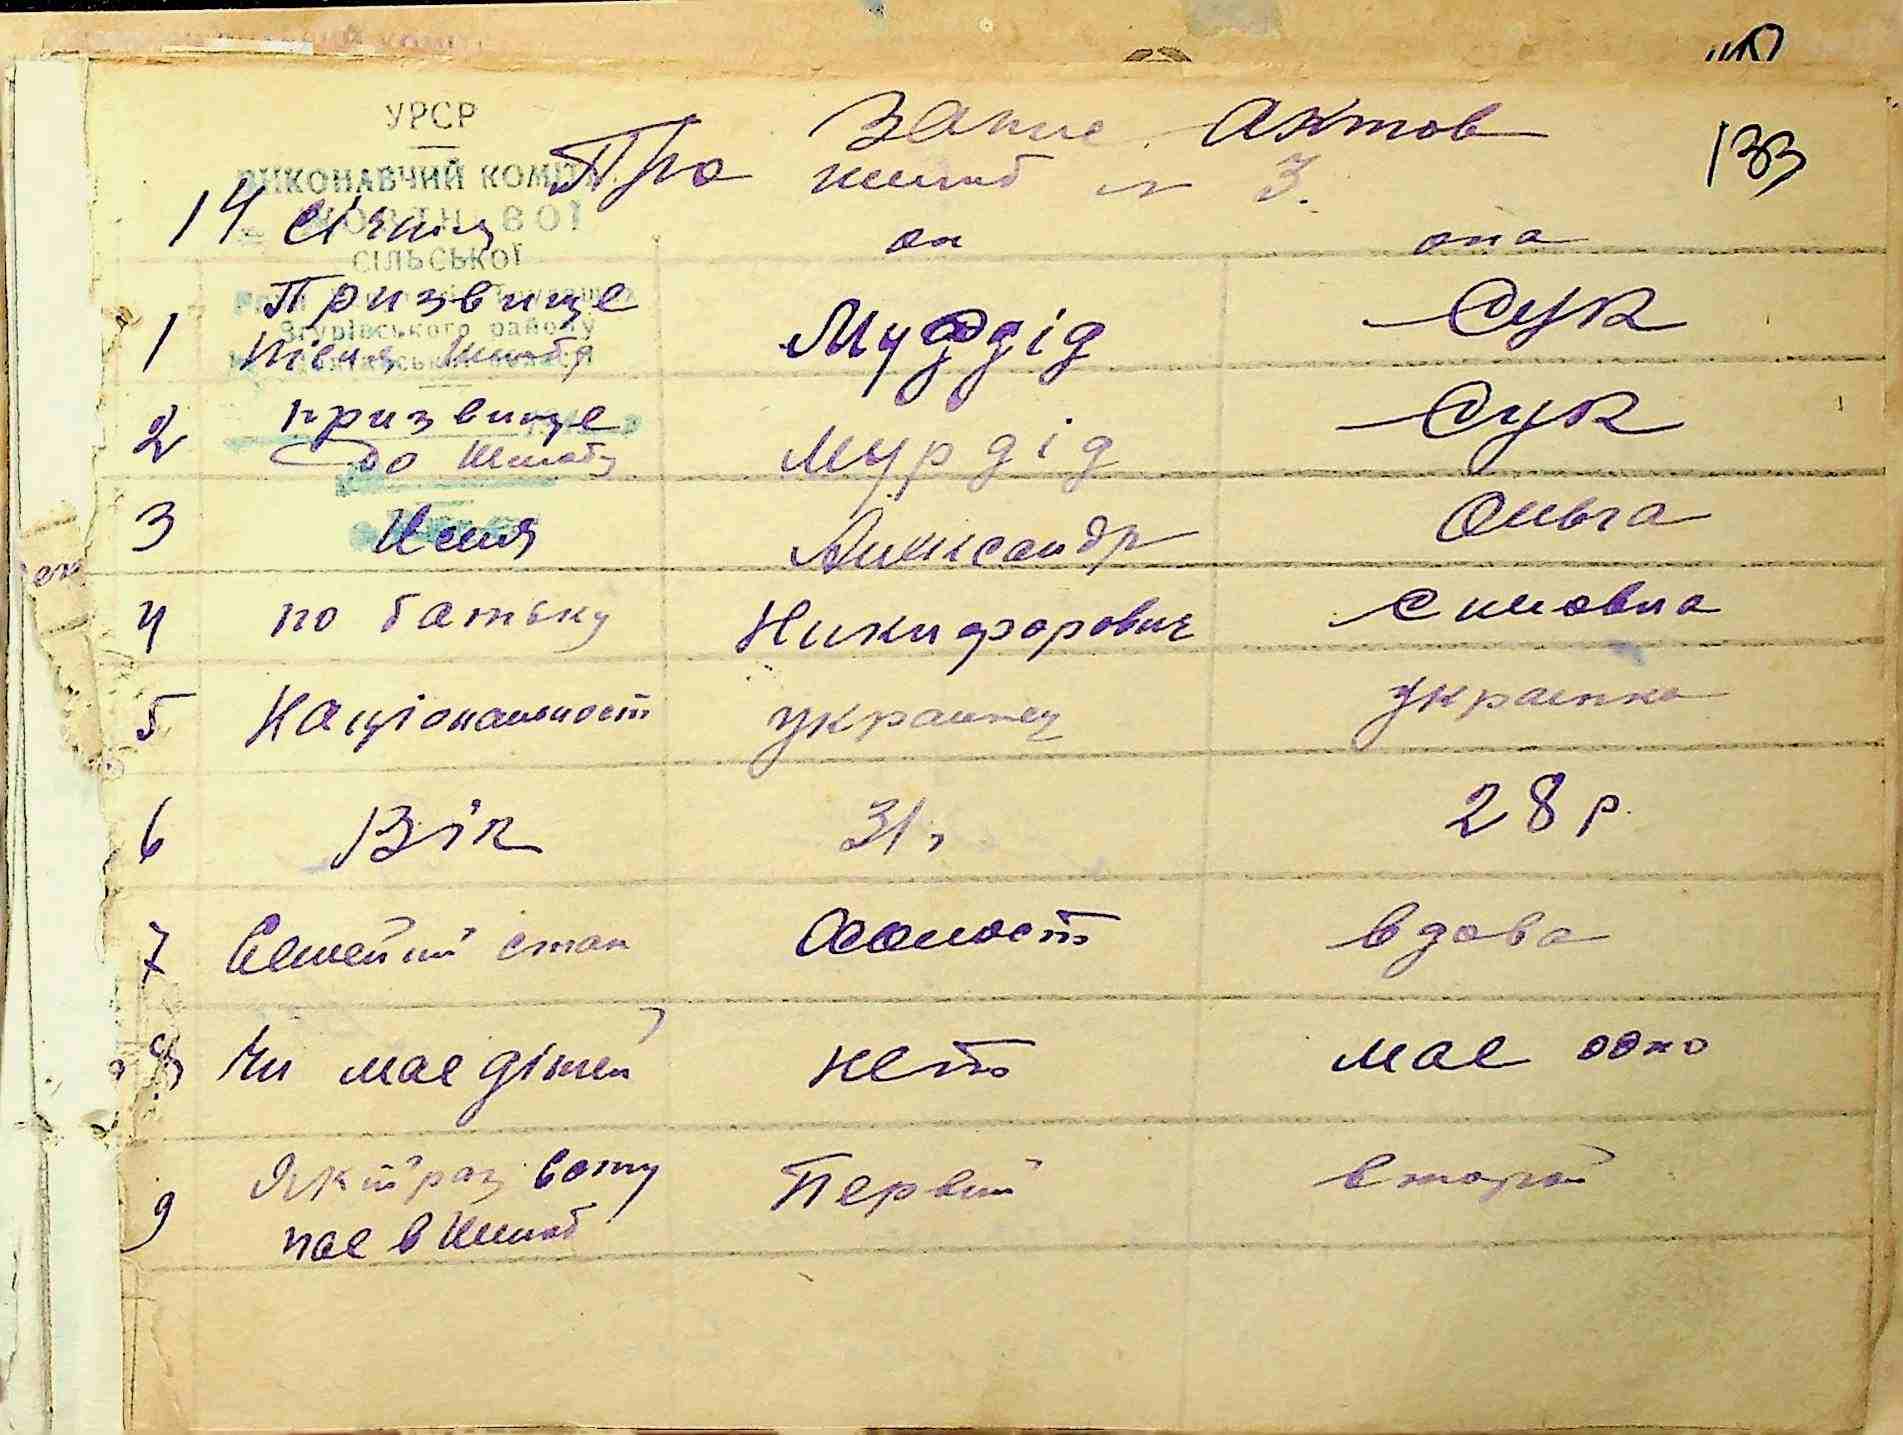 УРСР
ВИКОНАВЧИЙ КОМІТ
СІЛЬСЬКОЇ
Згурівського району
Запис Актов
Про шлюб № 3.
133
14 Січня он она
1 Призвище Мурдід Сук
після шлюбу
2 призвище Мурдід Сук
до шлюбу
3 Имя Александр Ольга
4 по батьку Никифорович Симовна
5 Націоналност украинец украинка
6 Вік 31 р 28 р.
7 Семейний стан Холост вдова
8 Чи мае дітей нет мае одно
9 Який раз всту
пае в шлюб Первий второй